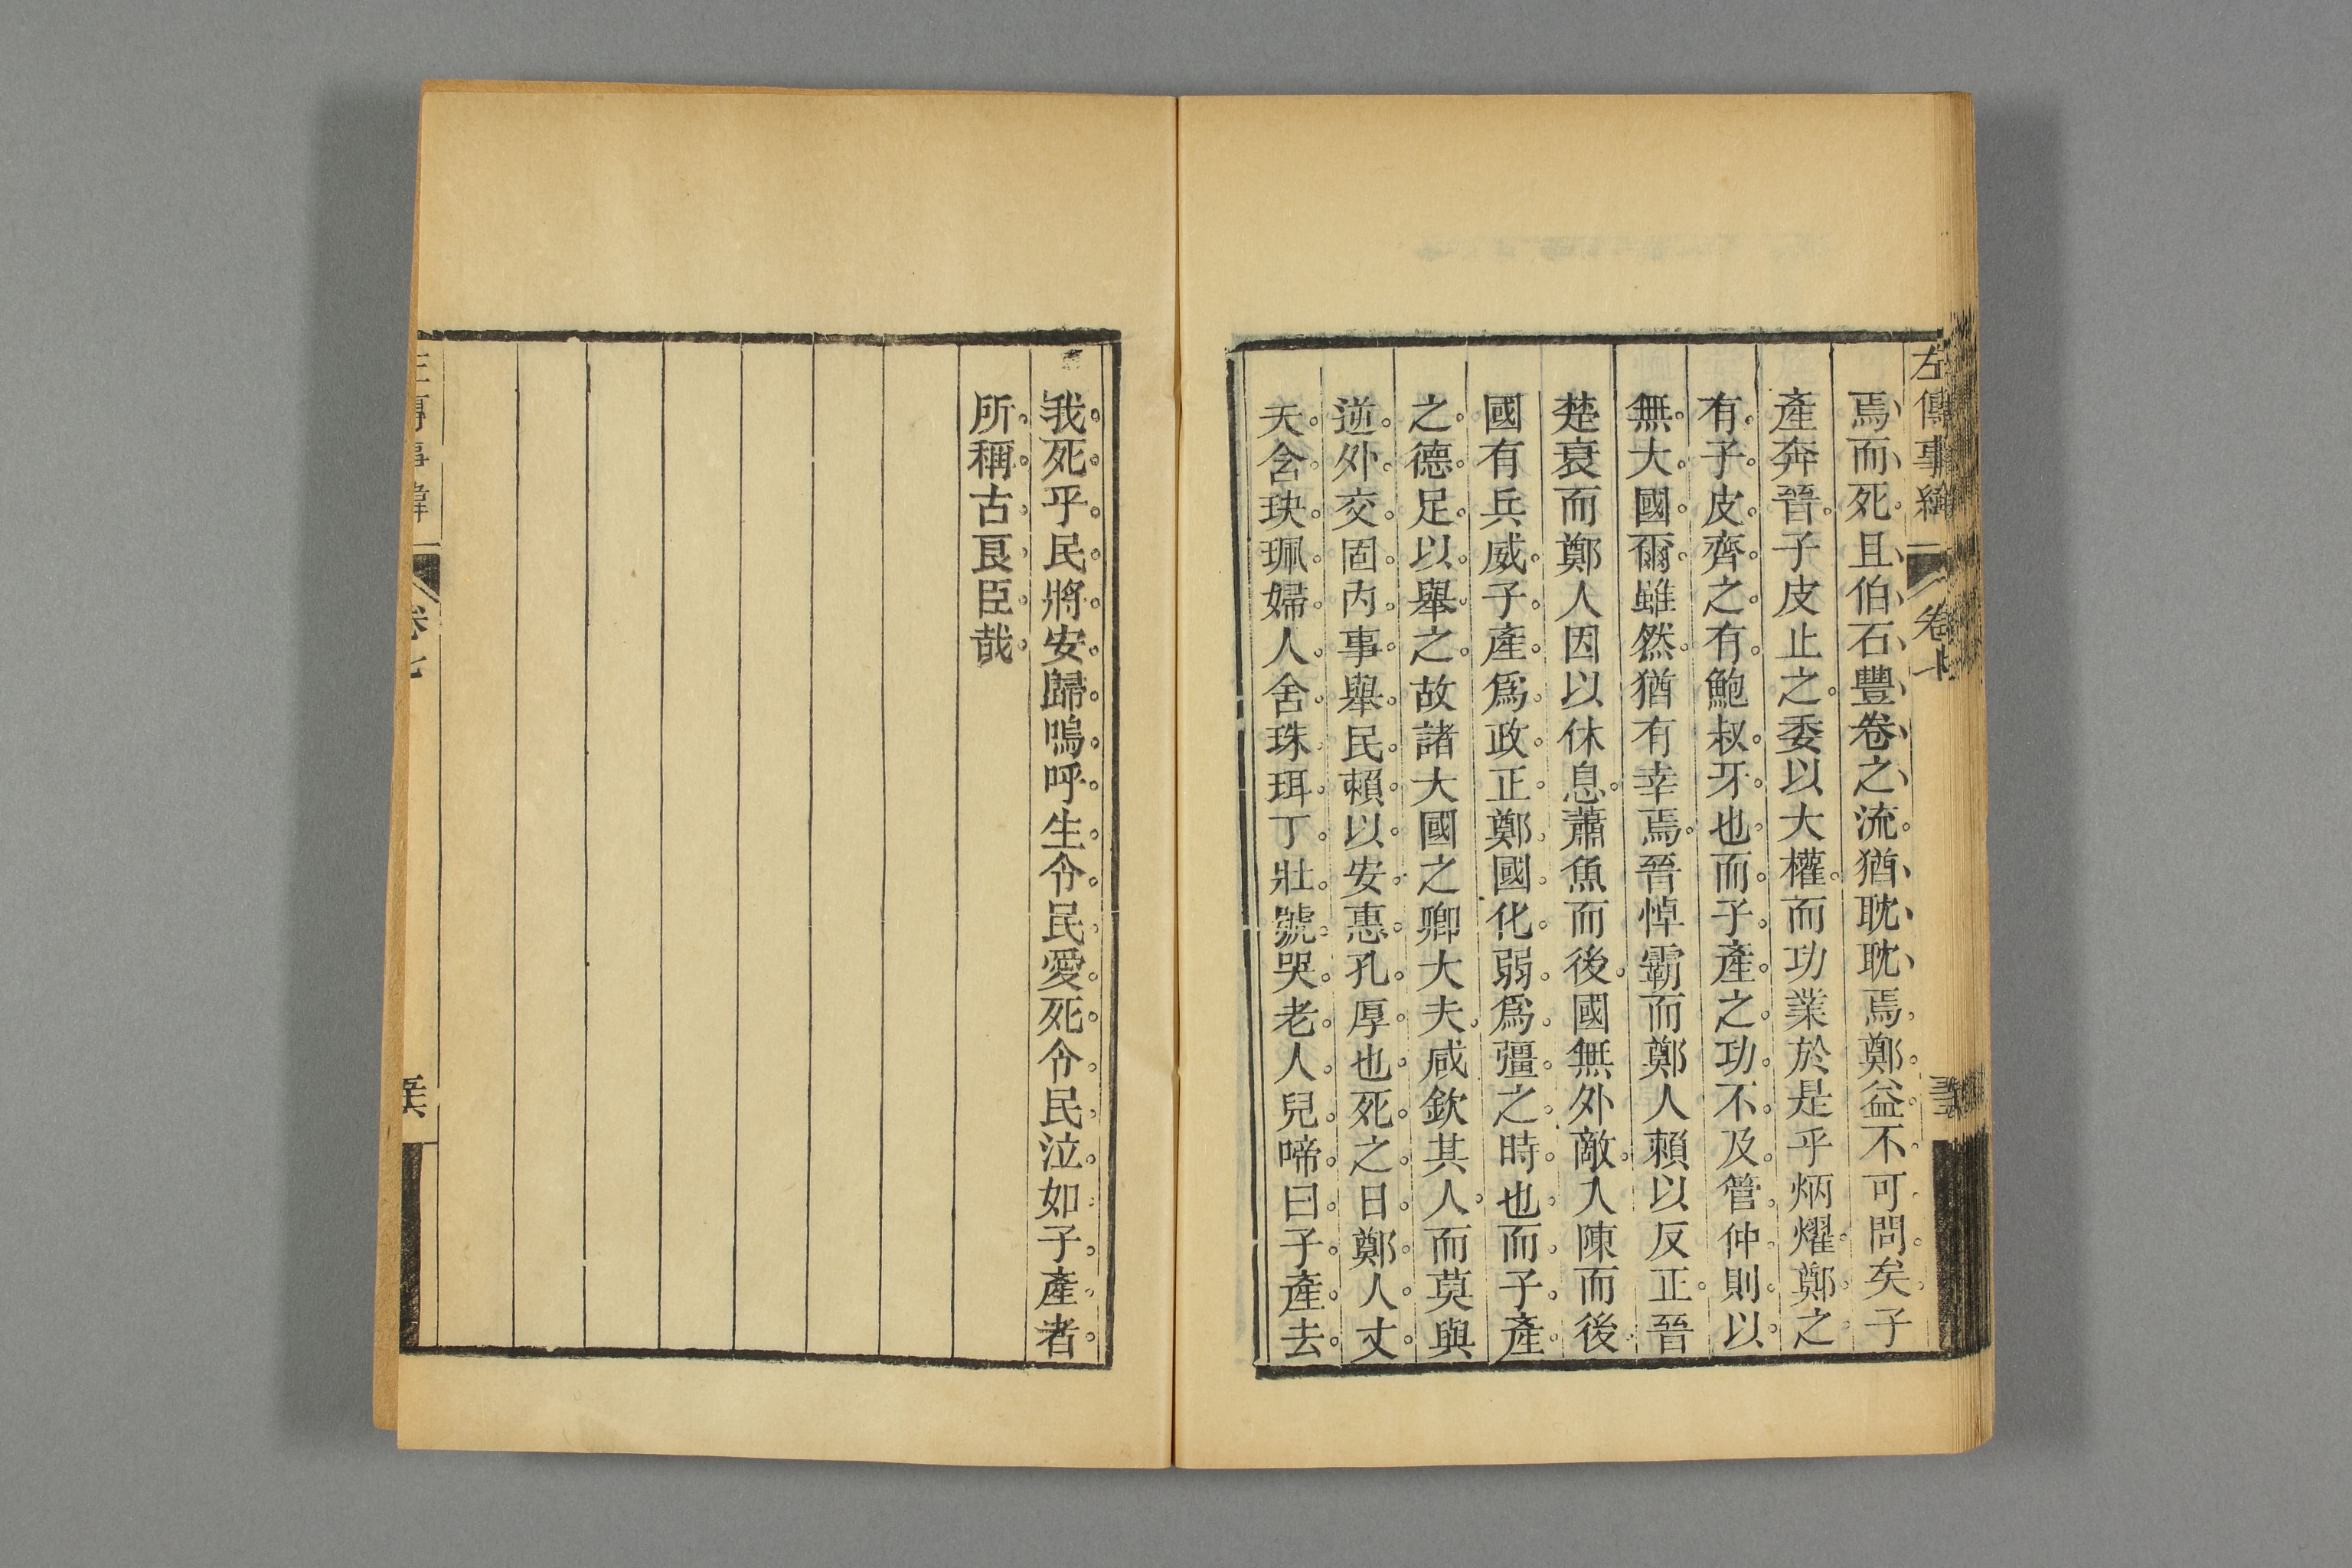 左傳事緯
卷七
焉而死且伯石豐卷之流猶耽耽焉鄭益不可問矣子
產奔晉子皮止之委以大權而功業於是乎炳燿鄭之
有子皮齊之有鮑叔牙也而子產之功不及管仲則以
無大國爾雖然猶有幸焉晉悼霸而鄭人賴以反正晉
楚衰而鄭人因以休息蕭魚而後國無外敵入陳而後
國有兵威子產爲政正鄭國化弱爲彊之時也而子產
之德足以舉之故諸大國之卿大夫咸欽其人而莫與
逆外交固內事舉民賴以安惠孔厚也死之日鄭人丈
夫舍玦珮婦人舍珠珥丁壯號哭老人兒啼曰子產去
我死乎民將安歸嗚呼生令民愛死令民泣如子產者
所稱古良臣哉